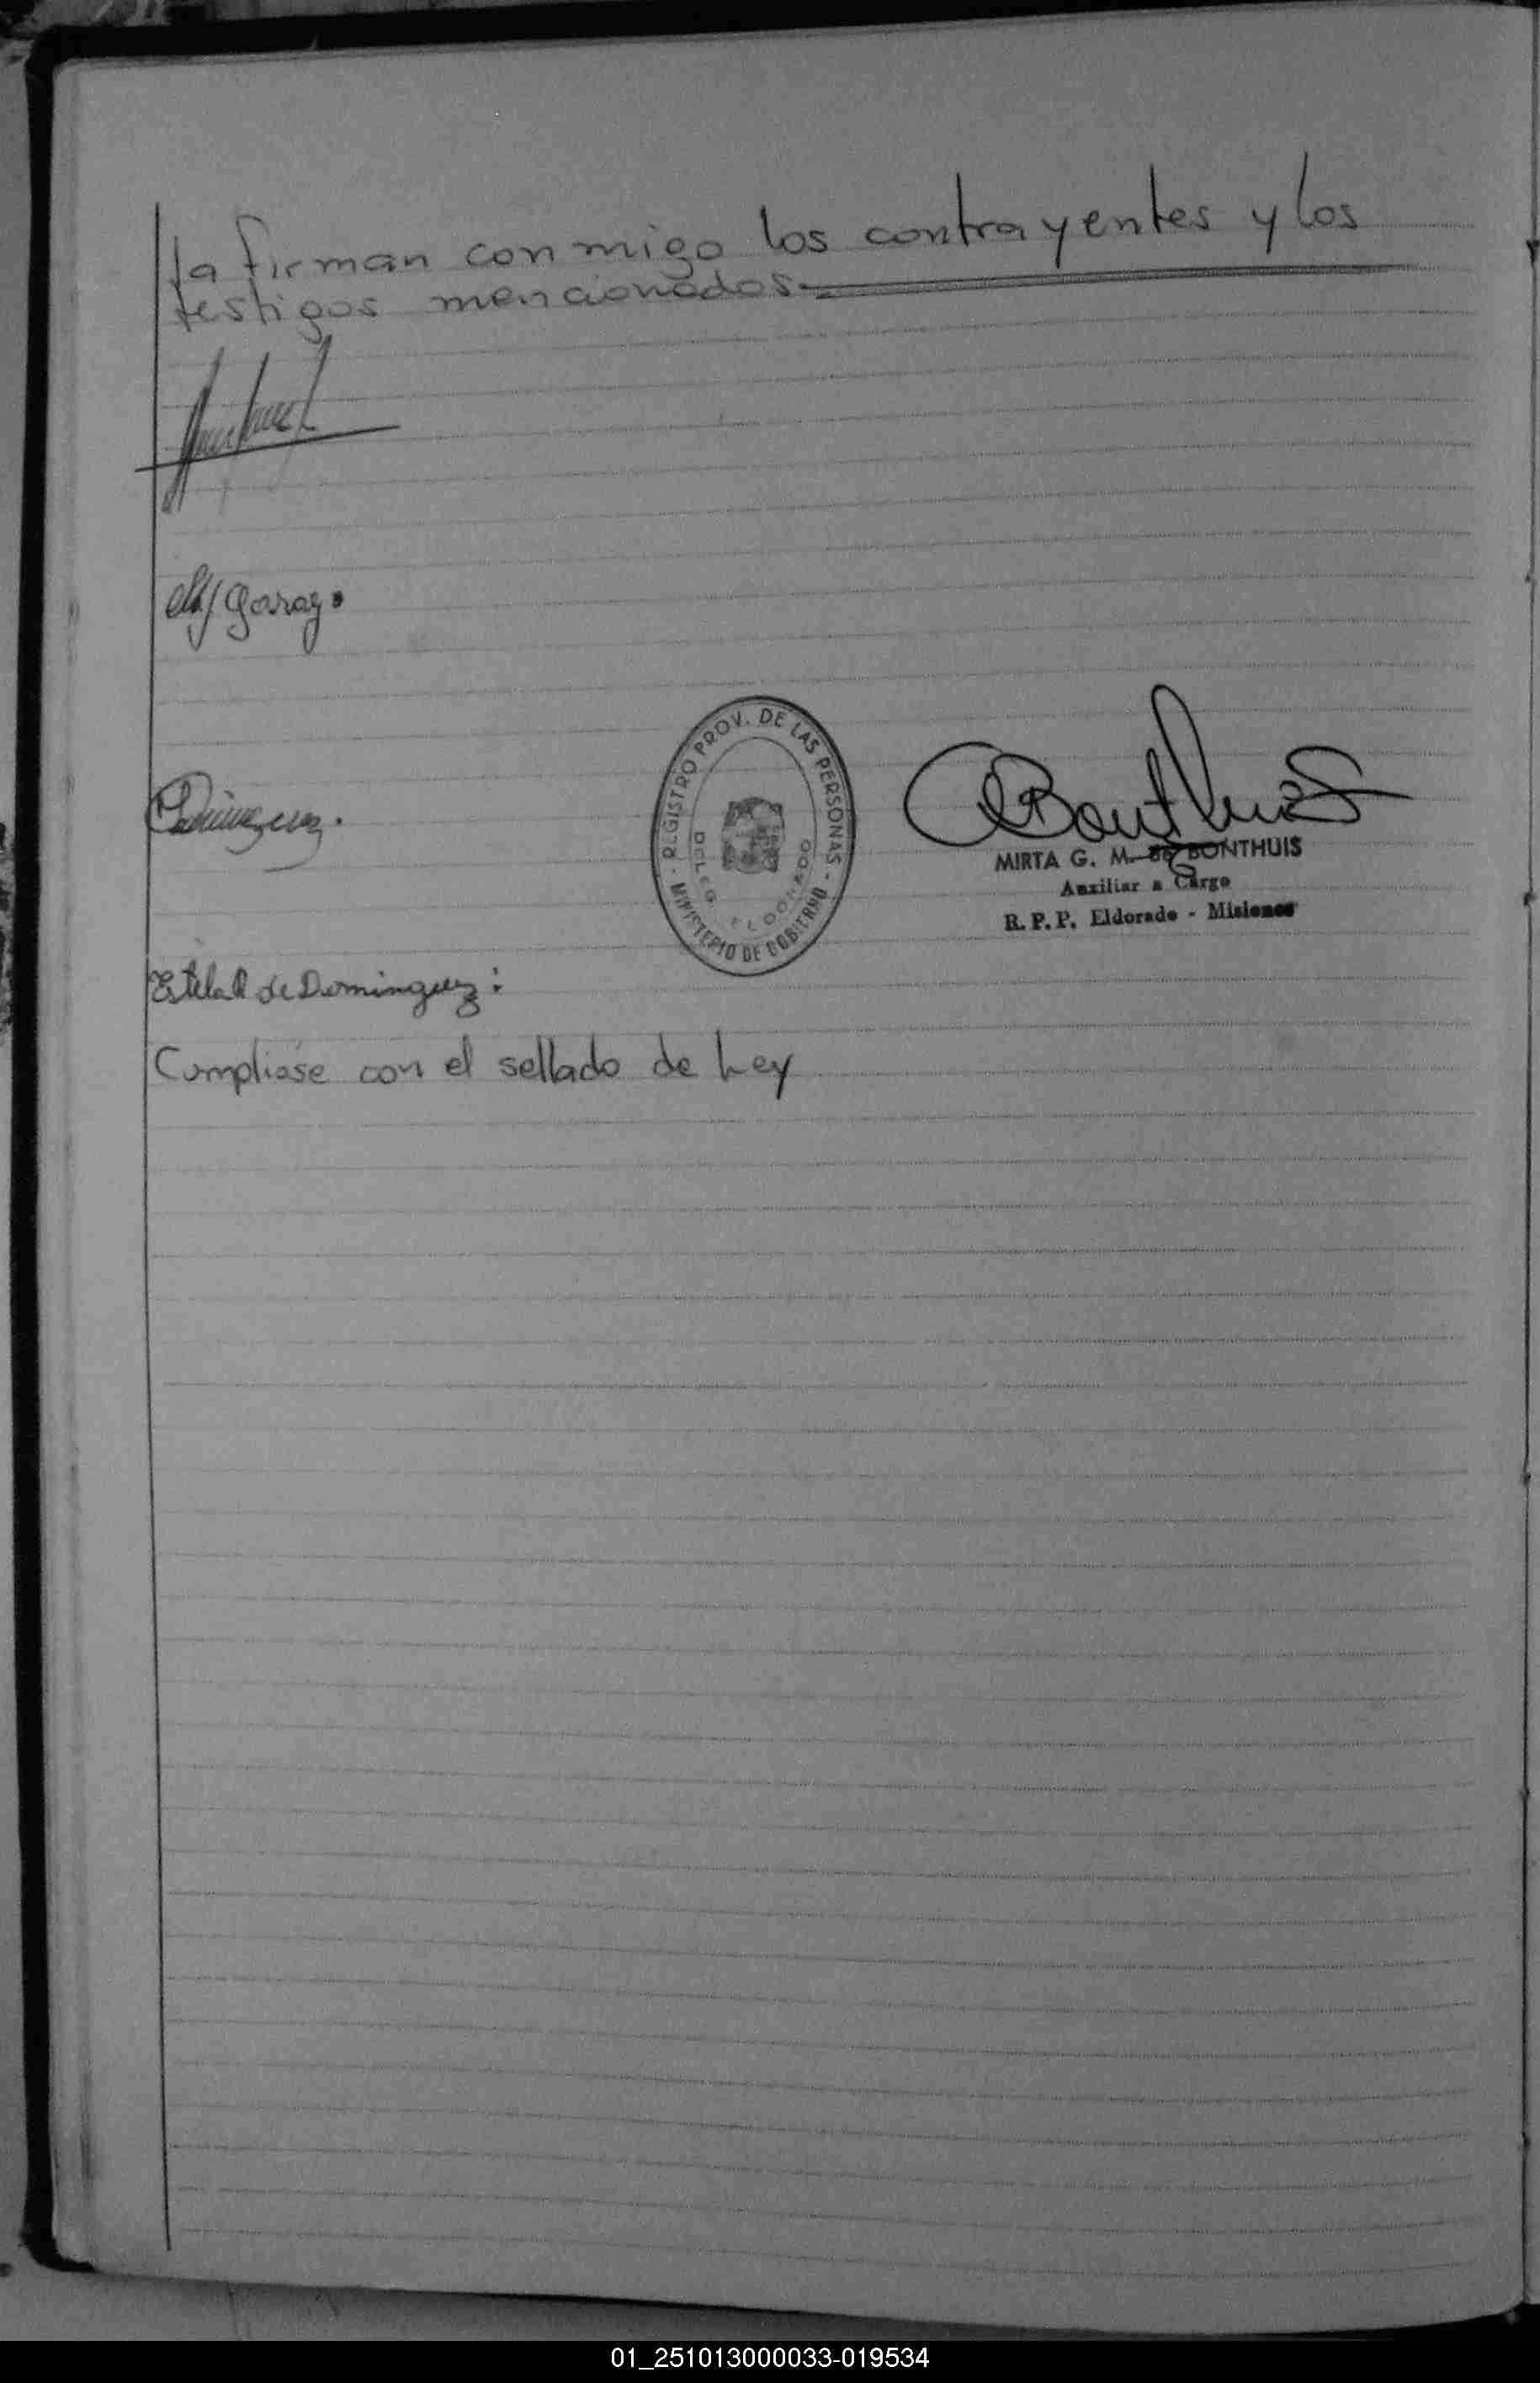 la firman conmigo los contrayentes y los
testigos mencionados.
Garay.
Dominguez.
REGISTRO PROV. DE LAS PERSONAS - MINISTERIO DE GOBIERNO -
DELEG. ELDORADO
Bonthuis
MIRTA G. M. de BONTHUIS
Auxiliar a Cargo
R. P. P. Eldorado - Misiones
Estela de Dominguez:
Cumpliose con el sellado de Ley
01_251013000033-019534